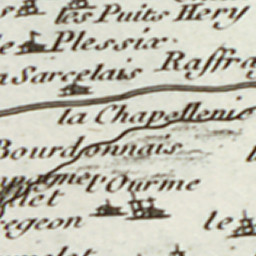 les Puits Hery
Plessix.
Sarcelais Raffra
la Chapellenie
Bourdonnais
l'Ourme
let
regeon
le